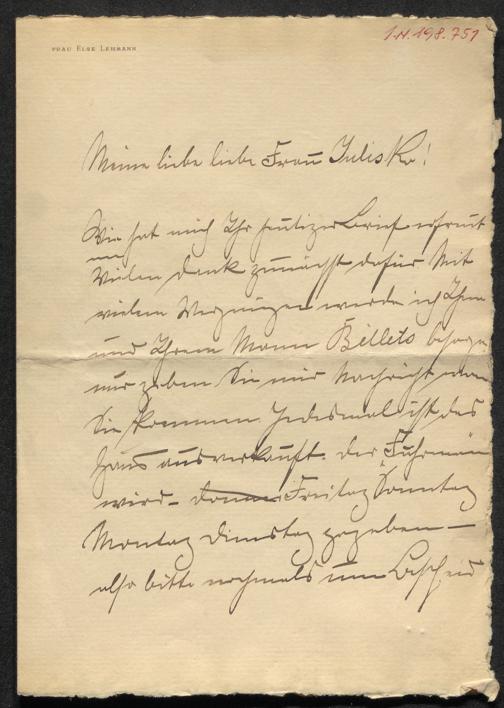 FRAU ELSE LEHMANN
I.N. 198.751
Meine liebe liebe Frau Juliska!
Wie hat mich Ihr heutiger Brief erfreut
Vielen Dank zunächst dafür Mit
vielem Vergnügen werde ich Ihnen
und Ihrem Mann Billets besorgen
nur geben Sie mir Nachricht wann
Sie kommen Jedesmal ist das
Haus ausverkauft. Der Fuhrmann
wird – Freitag Sonntag
Montag Dienstag gegeben —
also bitte nochmals um Bescheid